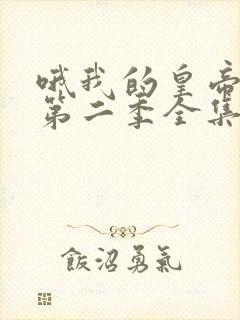 哦我的皇帝
第二季全集
飯沼勇氣